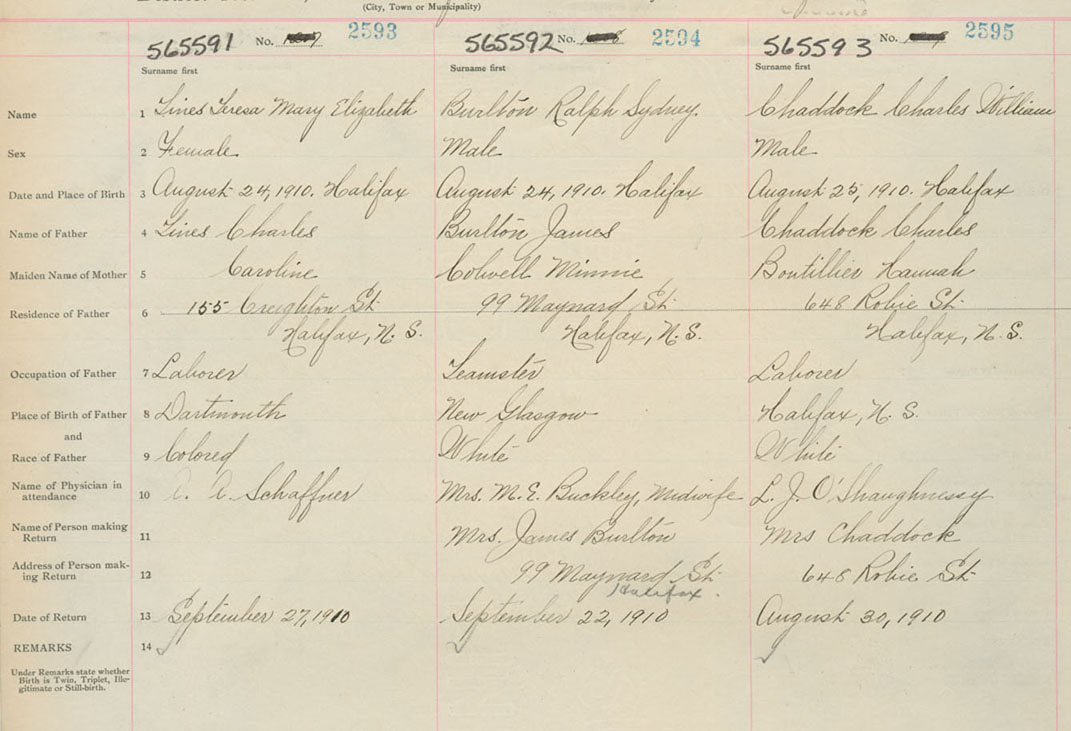 (City, Town or Municipality)
565591 No. 2593 565592 No. 2594 565593 No. 2595
Surname first Surname first Surname first
Name 1 Lines Teresa Mary Elizabeth Burlton Ralph Sydney. Chaddock Charles William
Sex 2 Female Male Male
Date and Place of Birth 3 August 24, 1910. Halifax August 24, 1910. Halifax August 25, 1910. Halifax
Name of Father 4 Lines Charles Burlton James Chaddock Charles
Maiden Name of Mother 5 Caroline Colwell Minnie Boutillier Hannah
Residence of Father 6 155 Creighton St. 99 Maynard St. 648 Robie St.
Halifax, N. S. Halifax, N. S. Halifax, N. S.
Occupation of Father 7 Laborer Teamster Laborer
Place of Birth of Father 8 Dartmouth New Glasgow Halifax, N. S.
and
Race of Father 9 Colored White White
Name of Physician in attendance 10 A. Schaffner Mrs. M. E. Buckley, Midwife L. J. O'Shaughnessy
Name of Person making Return 11 Mrs. James Burlton Mrs Chaddock
Address of Person mak-
ing Return 12 99 Maynard St. 648 Robie St.
Halifax.
Date of Return 13 September 27, 1910 September 22, 1910 August 30, 1910
REMARKS 14
Under Remarks state whether
Birth is Twin, Triplet, Ille-
gitimate or Still-birth.